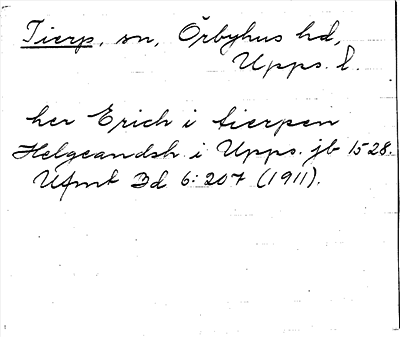 Tierp, sn, Örbyhus hd,
Upps. l.
her Erich i tierpen
Helgeandsh. i Upps. jb 1528.
Ufmt Bd 6: 207 (1911).